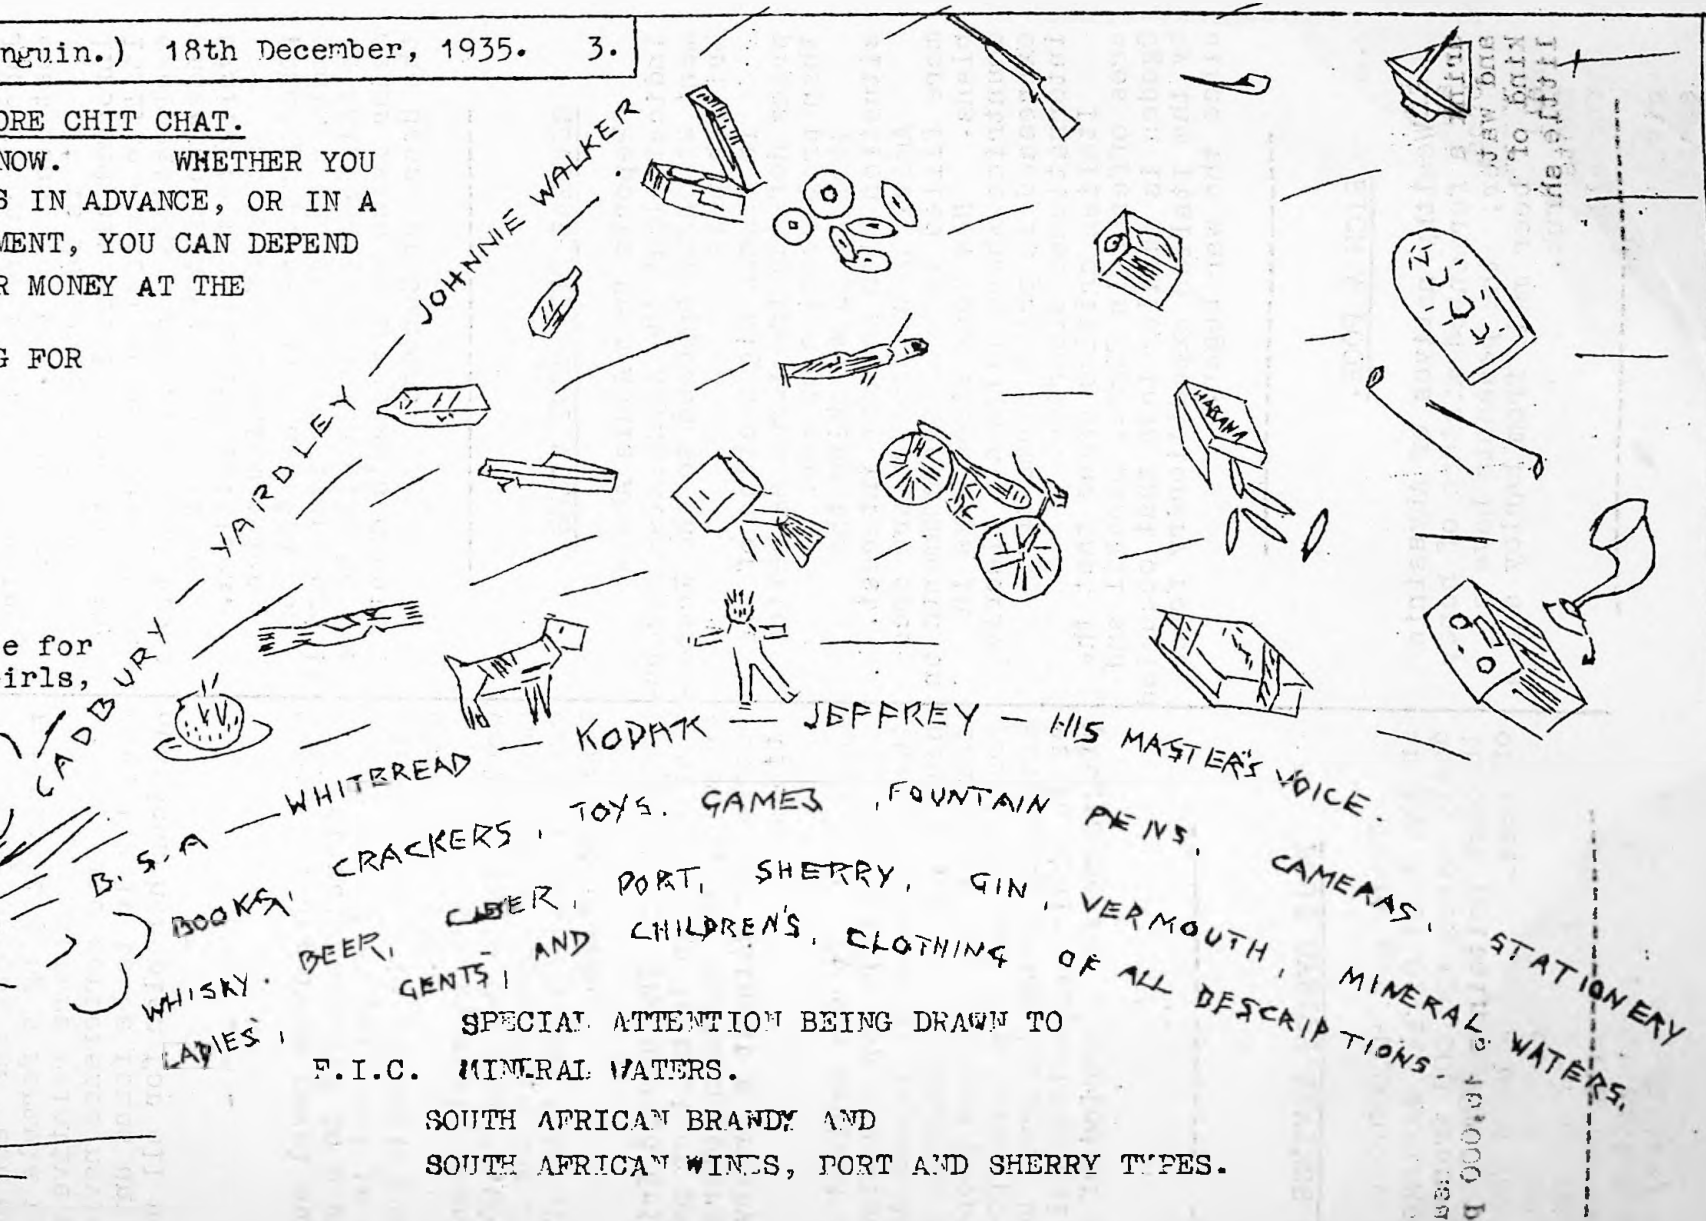 nguin.) 18th December, 1935. 3.
ORE CHIT CHAT.
NOW. WHETHER YOU
S IN ADVANCE, OR IN A
MENT, YOU CAN DEPEND
R MONEY AT THE
G FOR
e for
irls,
CADBURY — YARDLEY — JOHNNIE WALKER
HABANA
B.S.A — WHITBREAD — KODAK — JEFFREY — HIS MASTER'S VOICE.
BOOKS, CRACKERS, TOYS. GAMES, FOUNTAIN PENS, CAMERAS, STATIONERY
WHISKY. BEER, CIDER, PORT, SHERRY, GIN, VERMOUTH, MINERAL WATERS,
LADIES', GENTS', AND CHILDREN'S, CLOTHING OF ALL DESCRIPTIONS.
SPECIAL ATTENTION BEING DRAWN TO
F.I.C. MINERAL WATERS.
SOUTH AFRICAN BRANDY AND
SOUTH AFRICAN WINES, PORT AND SHERRY TYPES.